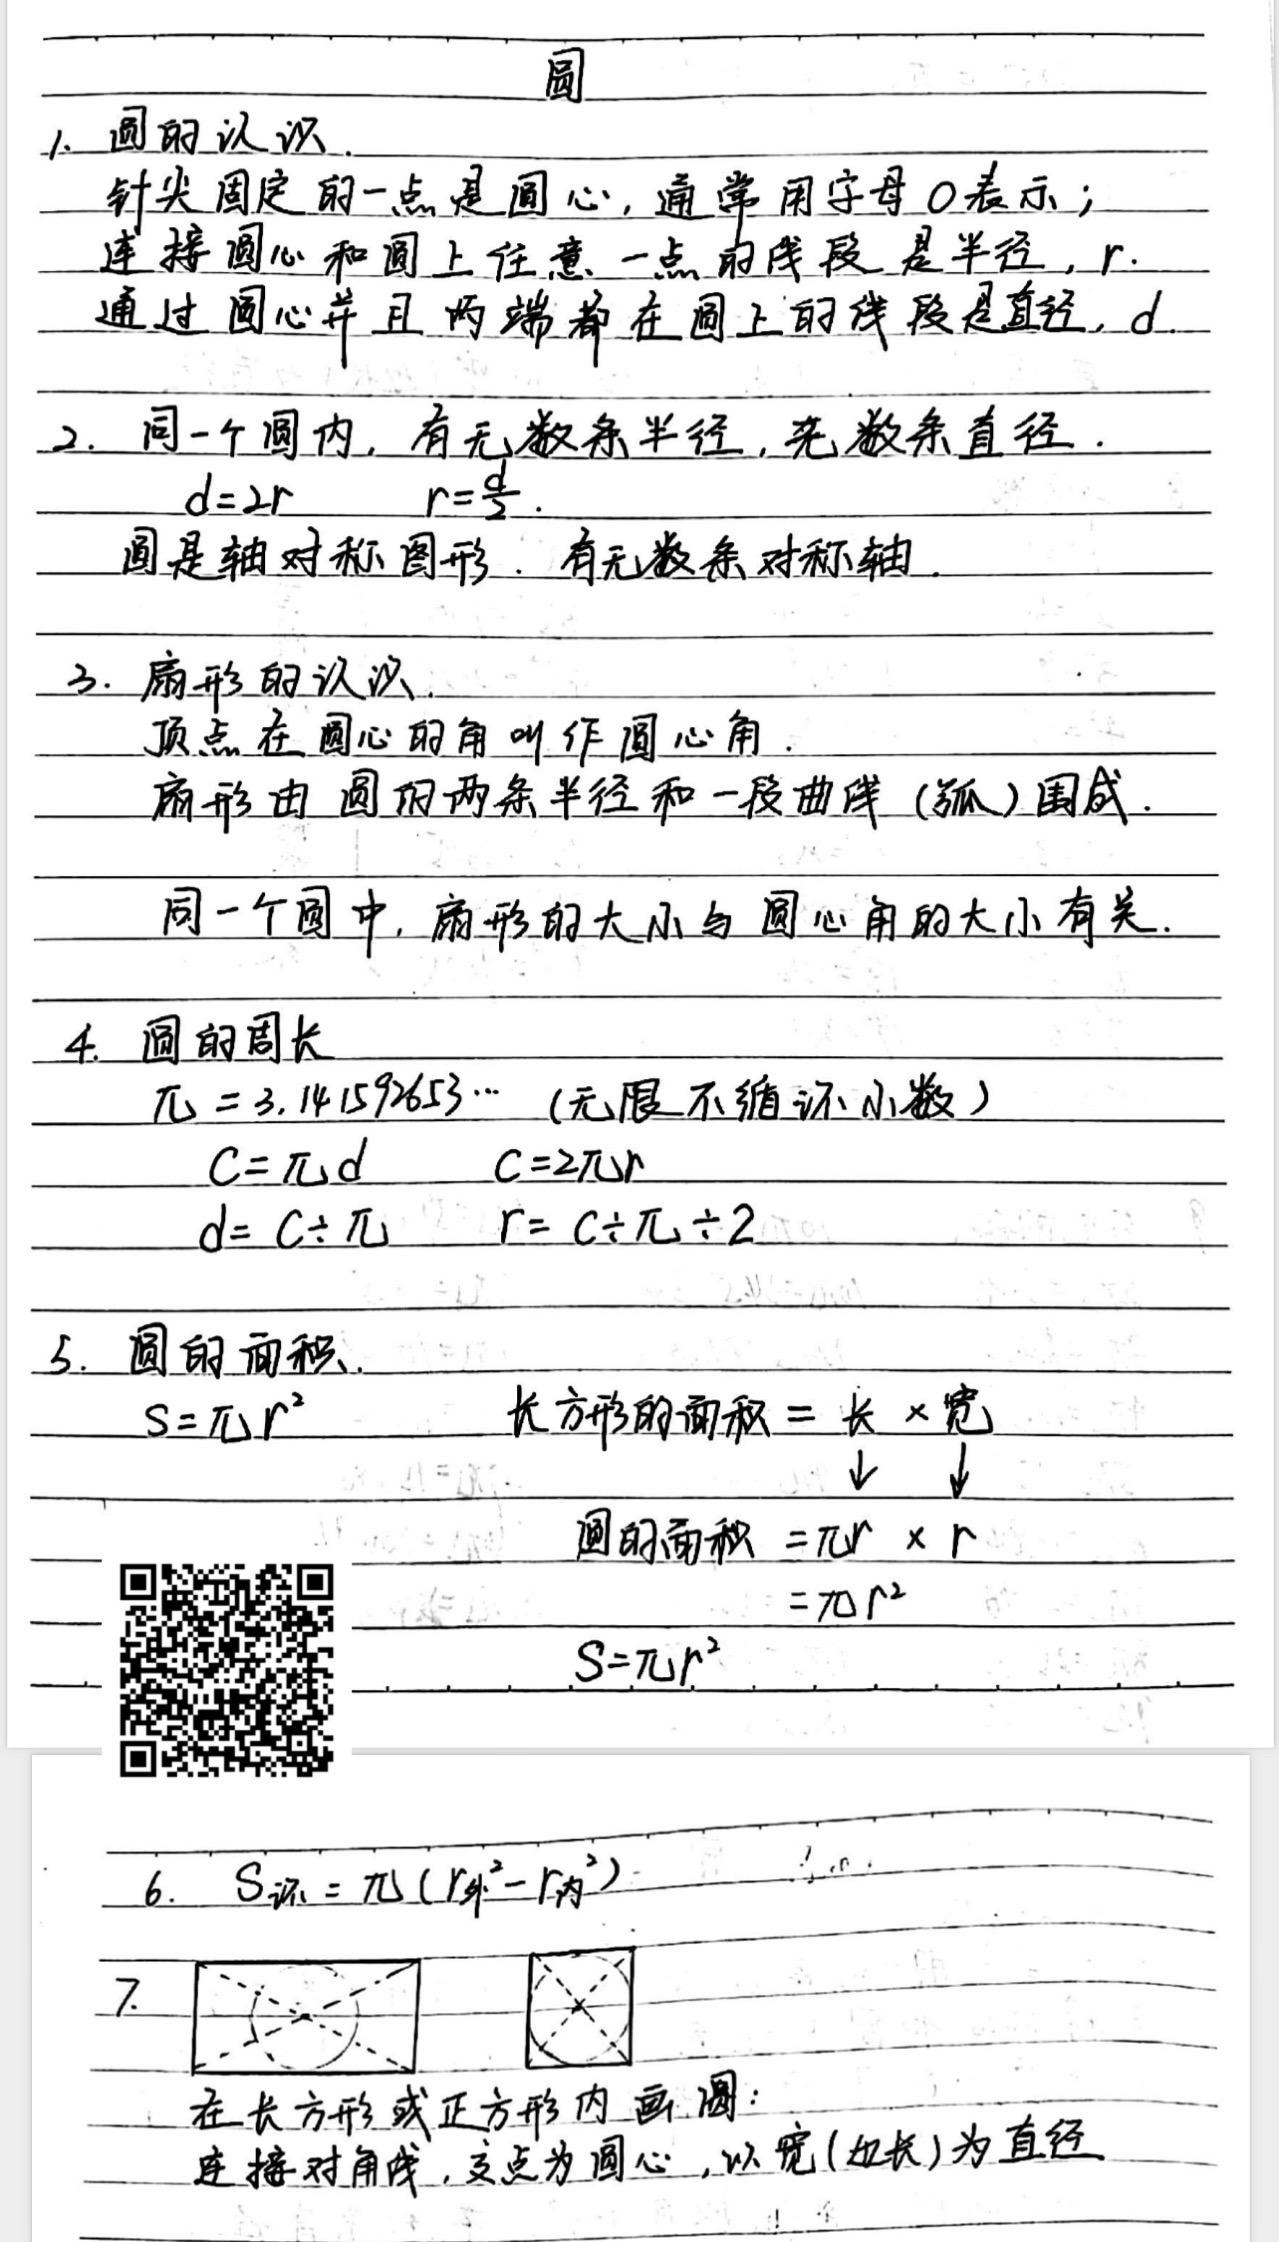 圆
1. 圆的认识.
针尖固定的一点是圆心，通常用字母O表示；
连接圆心和圆上任意一点的线段是半径，r.
通过圆心并且两端都在圆上的线段是直径，d.
2. 同一个圆内，有无数条半径，无数条直径.
d=2r r=d/2.
圆是轴对称图形. 有无数条对称轴.
3. 扇形的认识.
顶点在圆心的角叫作圆心角.
扇形由圆的两条半径和一段曲线（弧）围成.
同一个圆中，扇形的大小与圆心角的大小有关.
4. 圆的周长
π=3.141592653… （无限不循环小数）
C=πd C=2πr
d=C÷π r=C÷π÷2
5. 圆的面积.
S=πr² 长方形的面积=长×宽
↓ ↓
圆的面积=πr×r
=πr²
S=πr²
6. S环=π(r外²-r内²)
7.
在长方形或正方形内画圆：
连接对角线，交点为圆心，以宽（边长）为直径